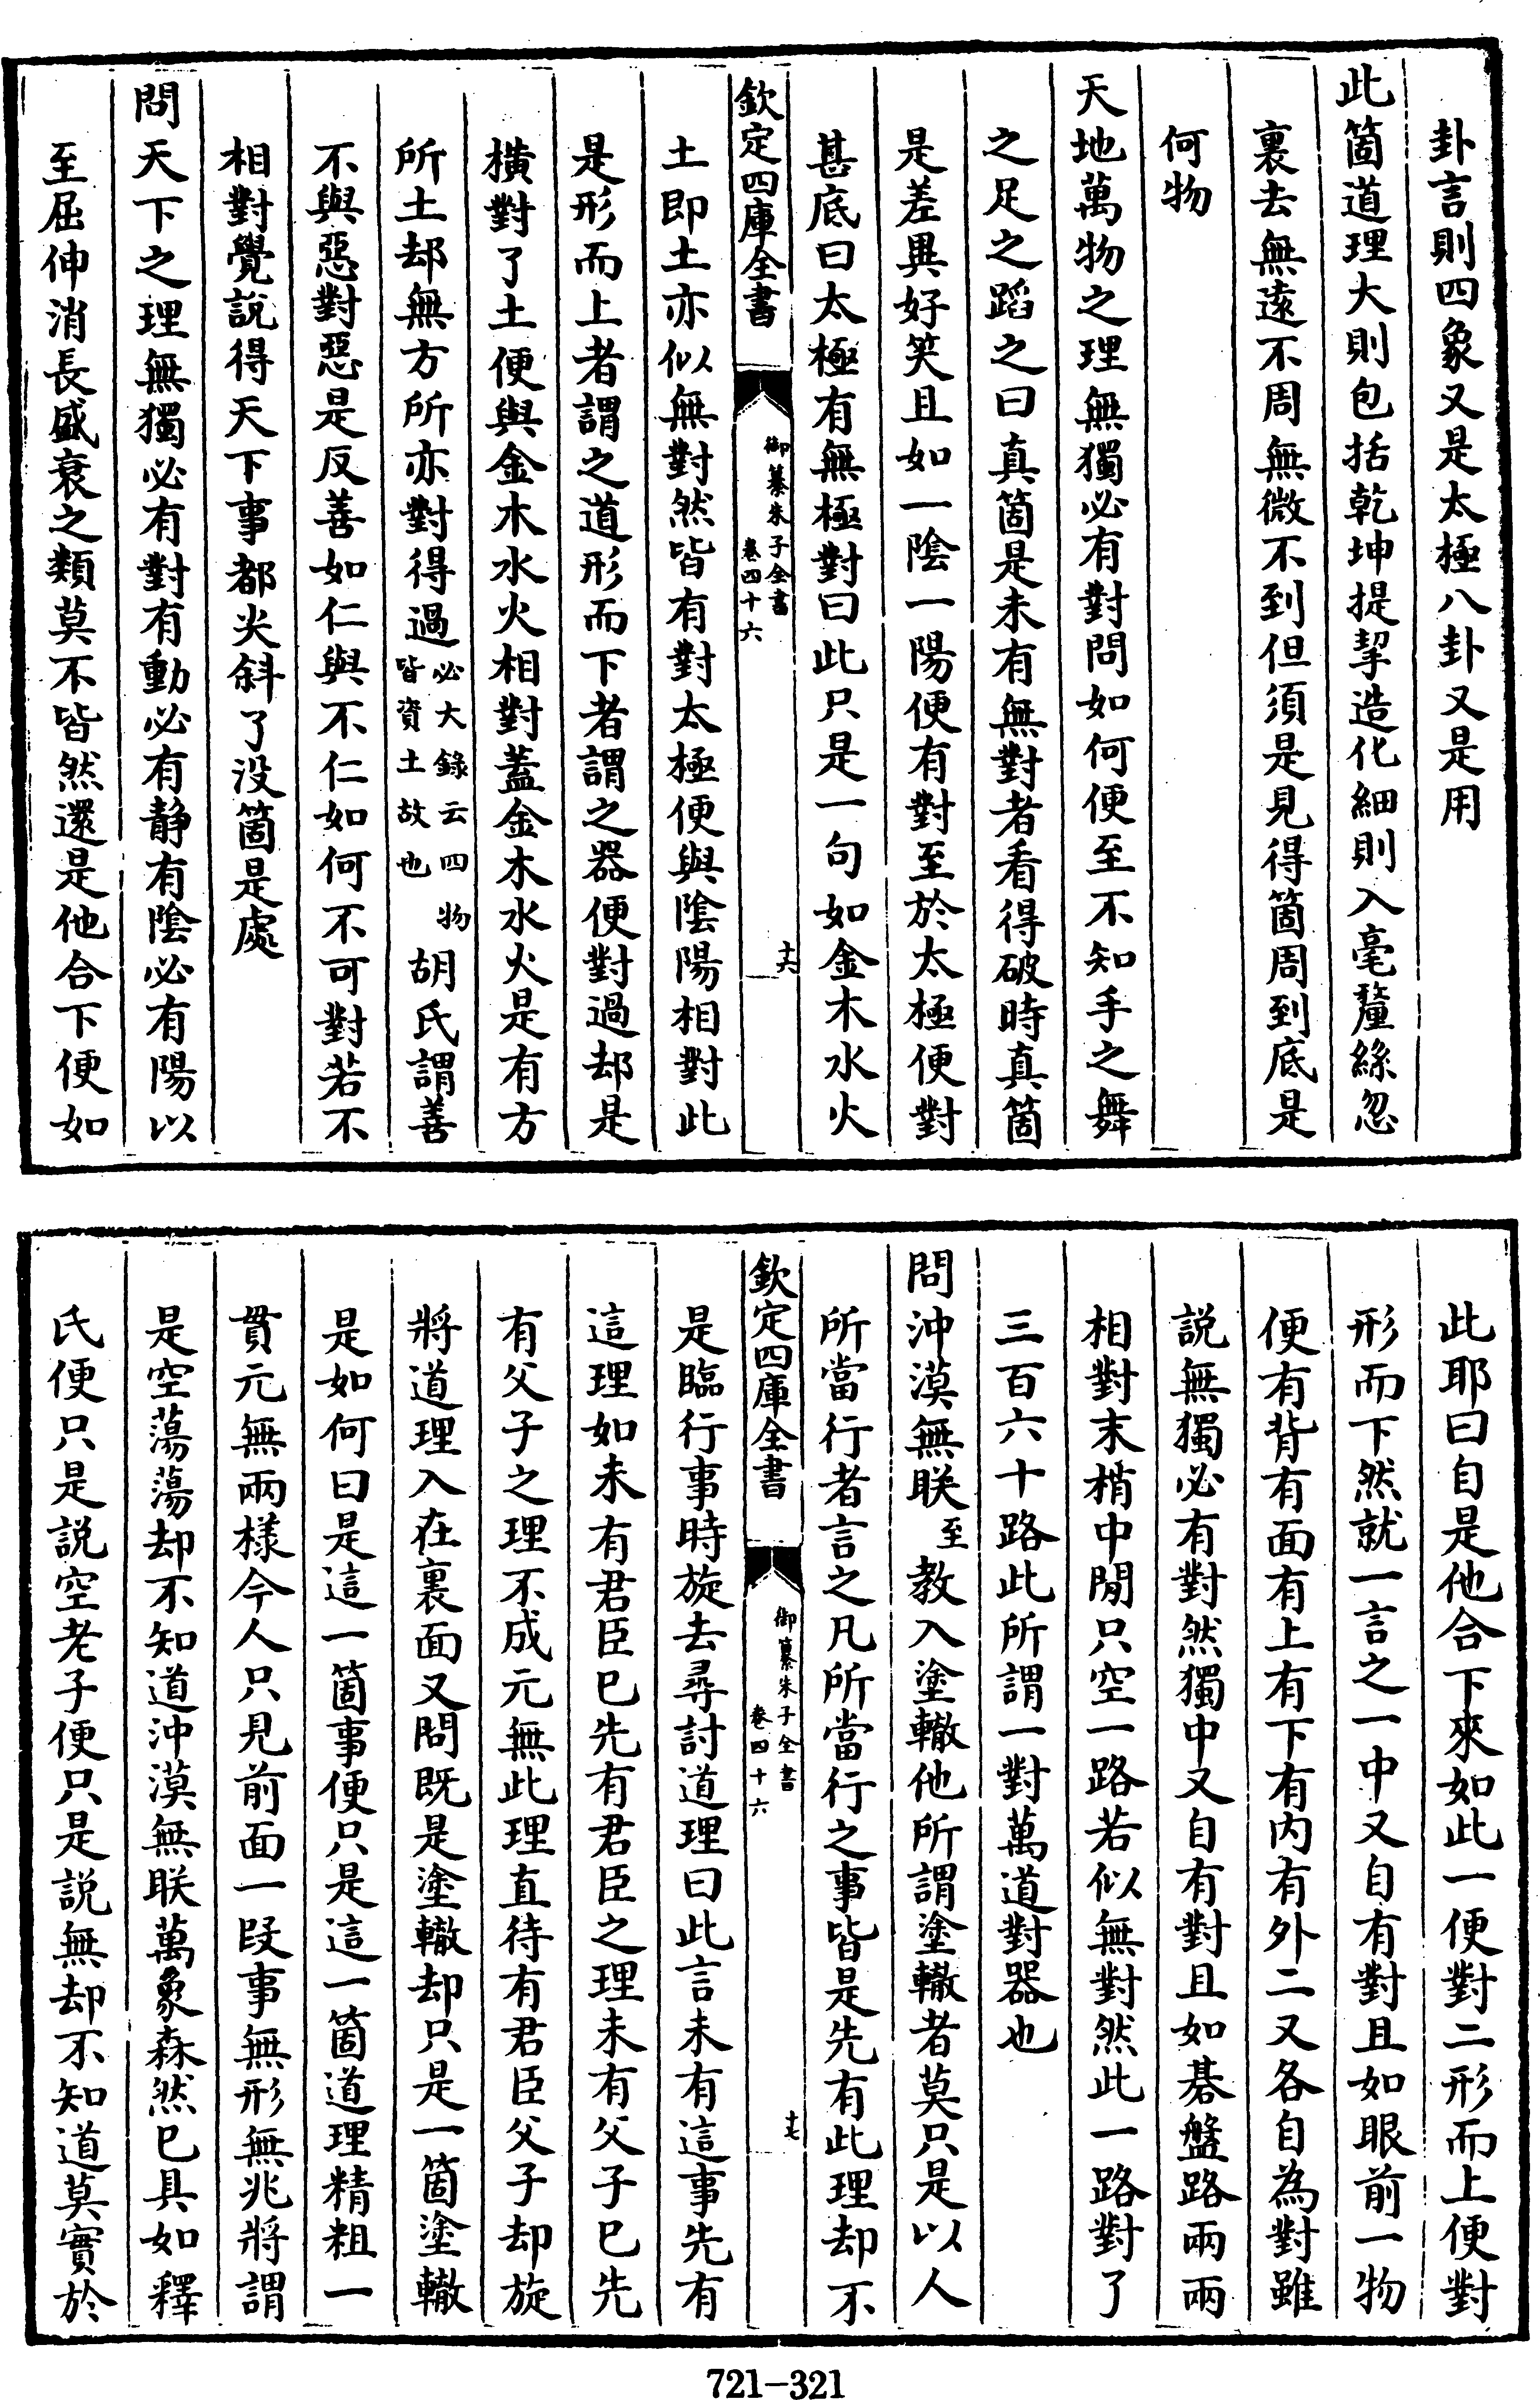 卦言則四象又是太極八卦又是用
此箇道理大則包括乾坤提挈造化細則入毫釐絲忽
裏去無遠不周無微不到但須是見得箇周到底是
何物
天地萬物之理無獨必有對問如何便至不知手之舞
之足之蹈之曰真箇是未有無對者看得破時真箇
是差異好笑且如一陰一陽便有對至於太極便對
甚底曰太極有無極對曰此只是一句如金木水火
欽定四庫全書
御纂朱子全書
卷四十六
十六
土即土亦似無對然皆有對太極便與陰陽相對此
是形而上者謂之道形而下者謂之器便對過却是
橫對了土便與金木水火相對蓋金木水火是有方
所土却無方所亦對得過必大錄云四物皆資土故也胡氏謂善
不與惡對惡是反善如仁與不仁如何不可對若不
相對覺說得天下事都尖斜了没箇是處
問天下之理無獨必有對有動必有静有陰必有陽以
至屈伸消長盛衰之類莫不皆然還是他合下便如
此耶曰自是他合下來如此一便對二形而上便對
形而下然就一言之一中又自有對且如眼前一物
便有背有面有上有下有内有外二又各自為對雖
説無獨必有對然獨中又自有對且如碁盤路兩兩
相對末梢中閒只空一路若似無對然此一路對了
三百六十路此所謂一對萬道對器也
問沖漠無联至教入塗轍他所謂塗轍者莫只是以人
所當行者言之凡所當行之事皆是先有此理却不
欽定四庫全書
御纂朱子全書
卷四十六
十七
是臨行事時旋去尋討道理曰此言未有這事先有
這理如未有君臣已先有君臣之理未有父子已先
有父子之理不成元無此理直待有君臣父子却旋
將道理入在裏面又問既是塗轍却只是一箇塗轍
是如何曰是這一箇事便只是這一箇道理精粗一
貫元無兩樣今人只見前面一段事無形無兆將謂
是空蕩蕩却不知道沖漠無联萬象森然已具如釋
氏便只是説空老子便只是説無却不知道莫實於
721-321